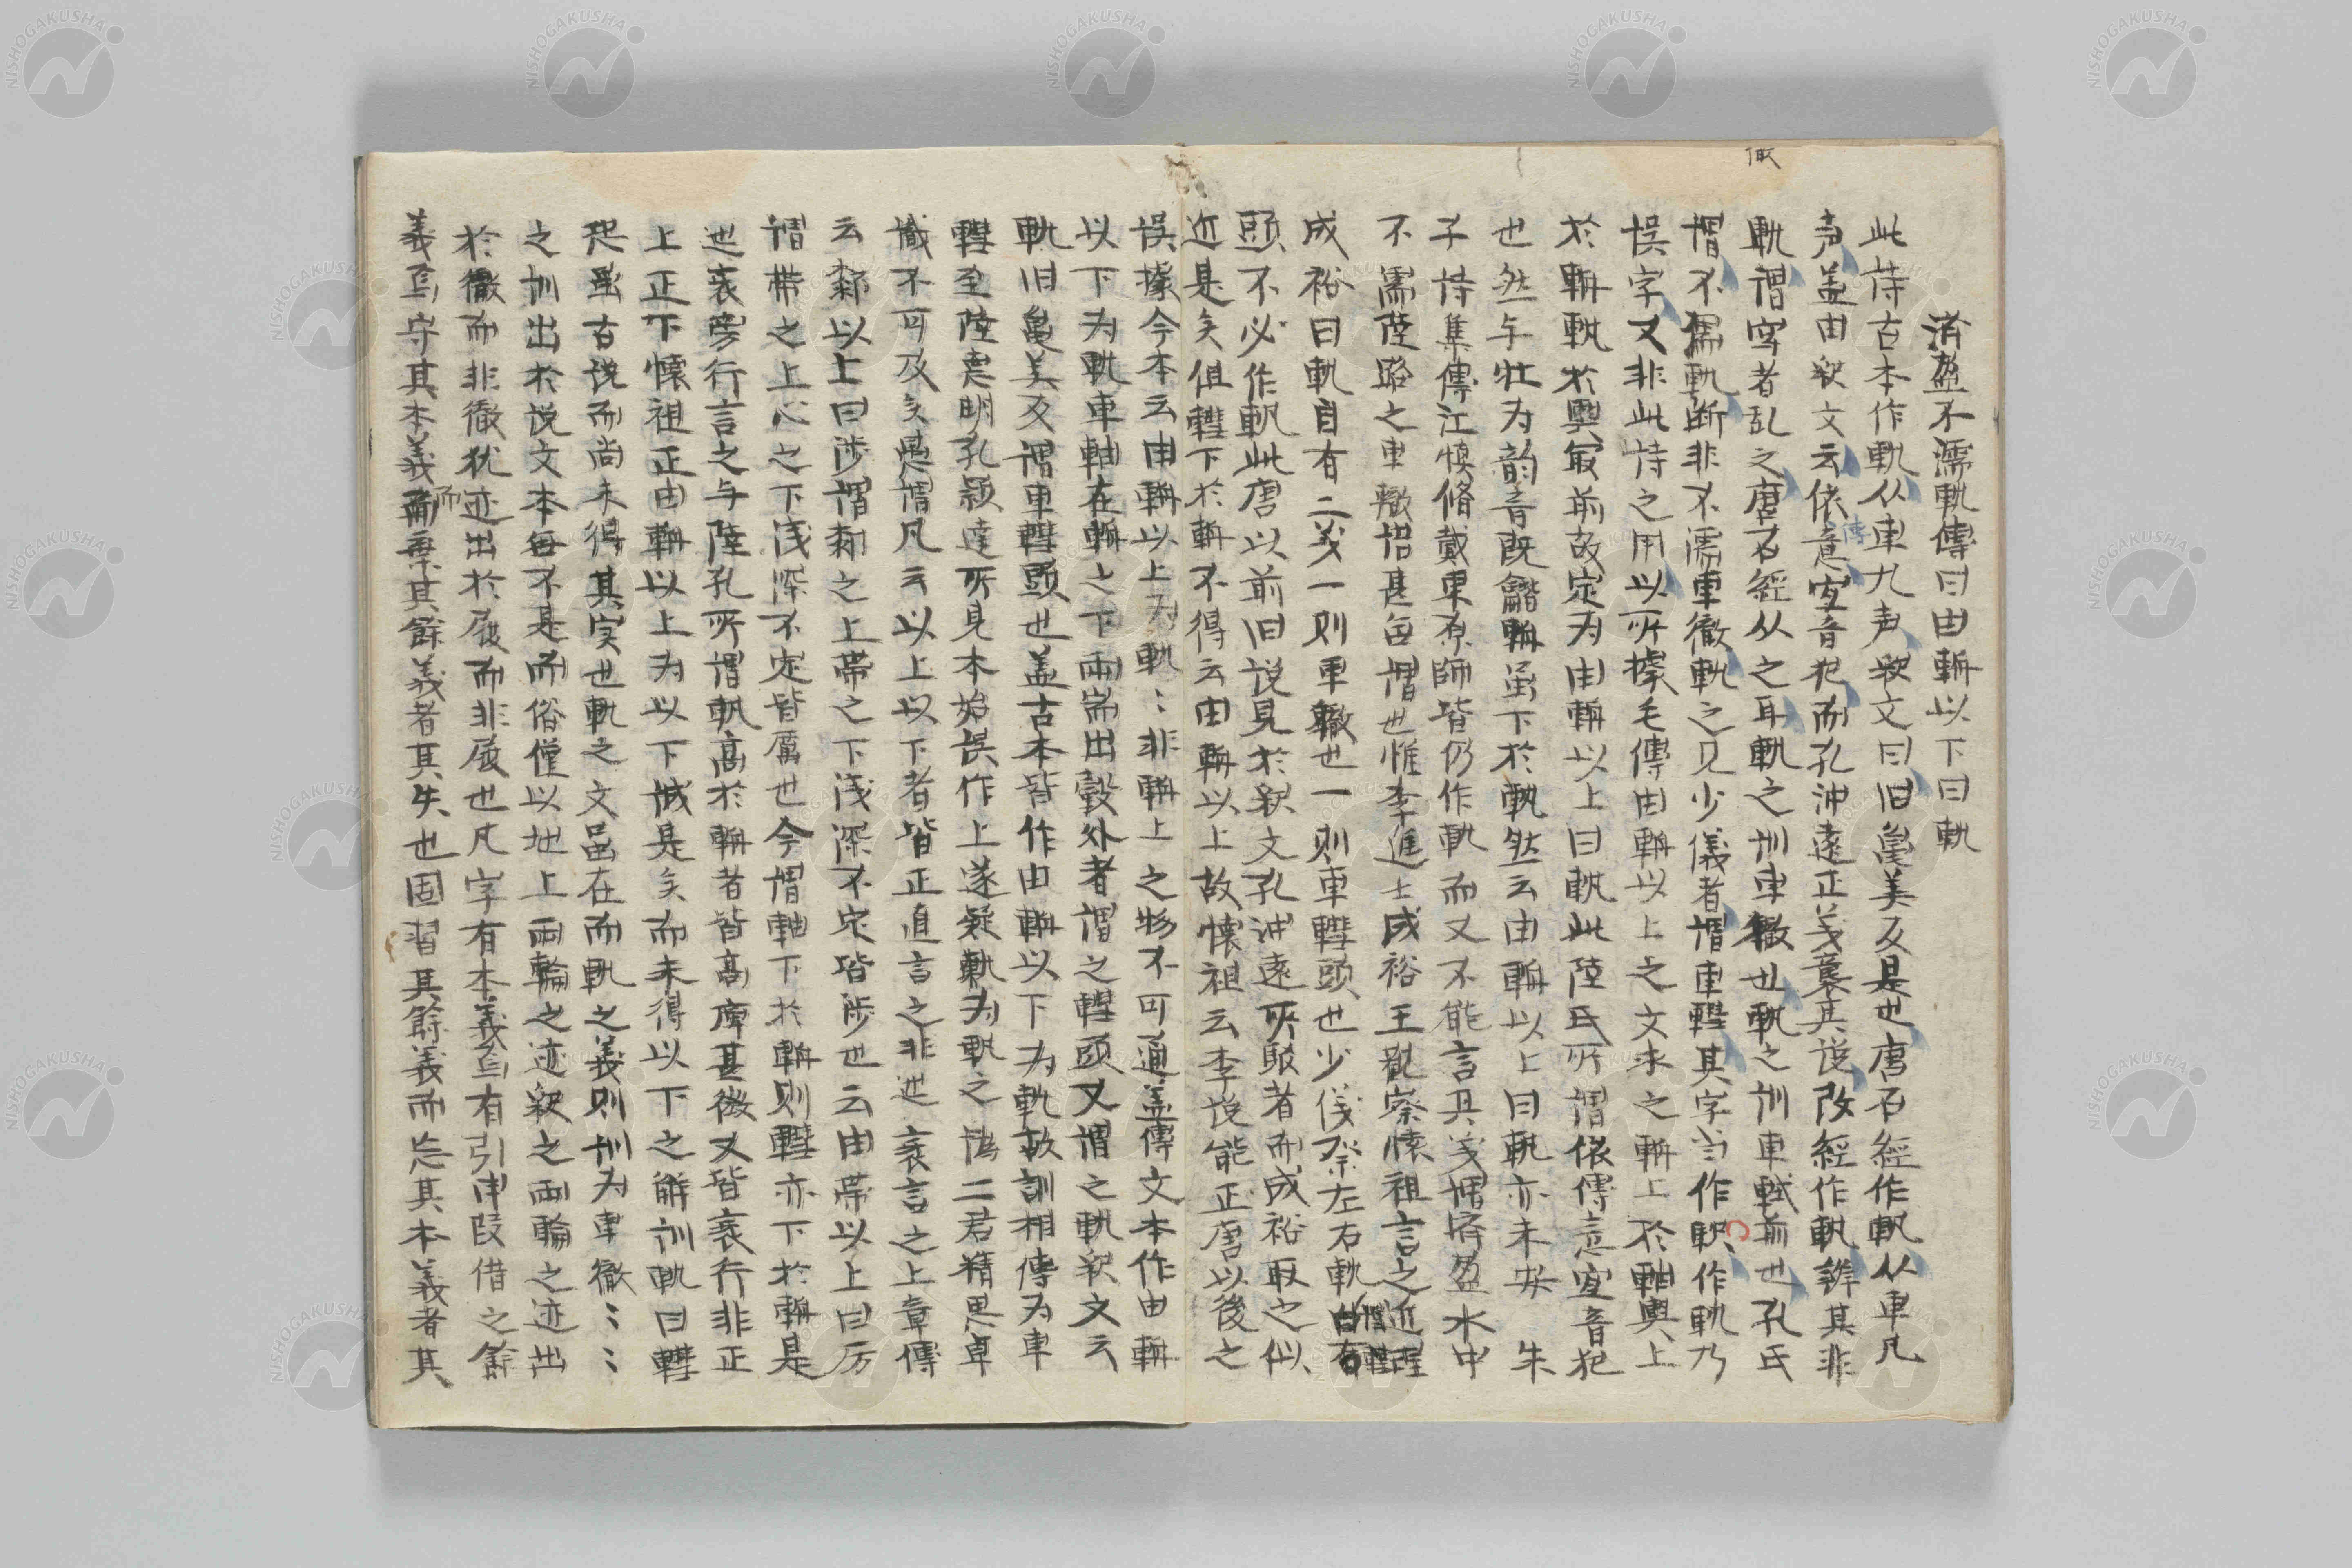 徹
済盈不濡軌傳曰由輈以下曰軌
此詩古本作軌从車九声釈文曰旧龜美反是也唐石經作軓从車凡
声盖由釈文云依傳意宜音犯而孔沖遠正義襲其説改經作軓辨其非
軌謂宄者乱之唐石經从之耳軌之訓車轍也軓之訓車軾前也孔氏
謂不濡軌断非不濡車徹軌之見少儀者謂車轊其字当作軹作軌乃
誤字又非此詩之用以所據毛傳由輈以上之文求之輈上於軸輿上
於輈軓於輿㝡前故定为由輈以上曰軓此陸氏所謂依傳意宜音犯
也然与牡为韵音既齟齬輈虽下於軓然云由輈以上曰軓亦未安　朱
子詩集傳江慎脩戴東原師皆仍作軌而又不能言其义謂済盈水中
不濡陸路之車轍語甚無謂也惟李進士成裕王觀察懷祖言之近理
成裕曰軌自有二义一则車轍也一则車轊頭也少儀祭左右軌謂轊
頭不必作軓此唐以前旧説見於釈文孔沖遠所駁者而成裕取之似
近是矣但轊下於輈不得云由輈以上故懷祖云李説能正唐以後之
誤據今本云由輈以上为軌〻非輈上之物不可通盖傳文本作由輈
以下为軌車軸在輈之下兩耑出轂外者謂之轊頭又謂之軌釈文云
軌旧龜美反謂車轊頭也盖古本皆作由輈以下为軌故訓相傳为車
轊至陸惪明孔穎達所見本始誤作上遂疑軌为軓之譌二君精思卓
識不可及矣愚謂凡云以上以下者皆正直言之非迆衺言之上章傳
云鄹以上曰涉謂䣛之上帶之下浅深不定皆涉也云由帶以上曰厉
謂帶之上心之下浅深不定皆厲也今謂軸下於輈则轊亦下於輈是
迆衺旁行言之与陸孔所謂軓高於輈者皆高庳甚微又皆衺行非正
上正下懷祖正由輈以上为以下诚是矣而未得以下之解訓軌曰轊
现虽古説而尚未得其实也軌之文虽在而軌之義则訓为車徹〻〻
之訓出於説文本毎不是而俗僅以地上兩輪之迹釈之兩輪之迹出
於徹而非徹犹迹出於屐而非屐也凡字有本義焉有引申叚借之餘
義焉守其本義而棄其餘義者其失也固習其餘義而忘其本義者其